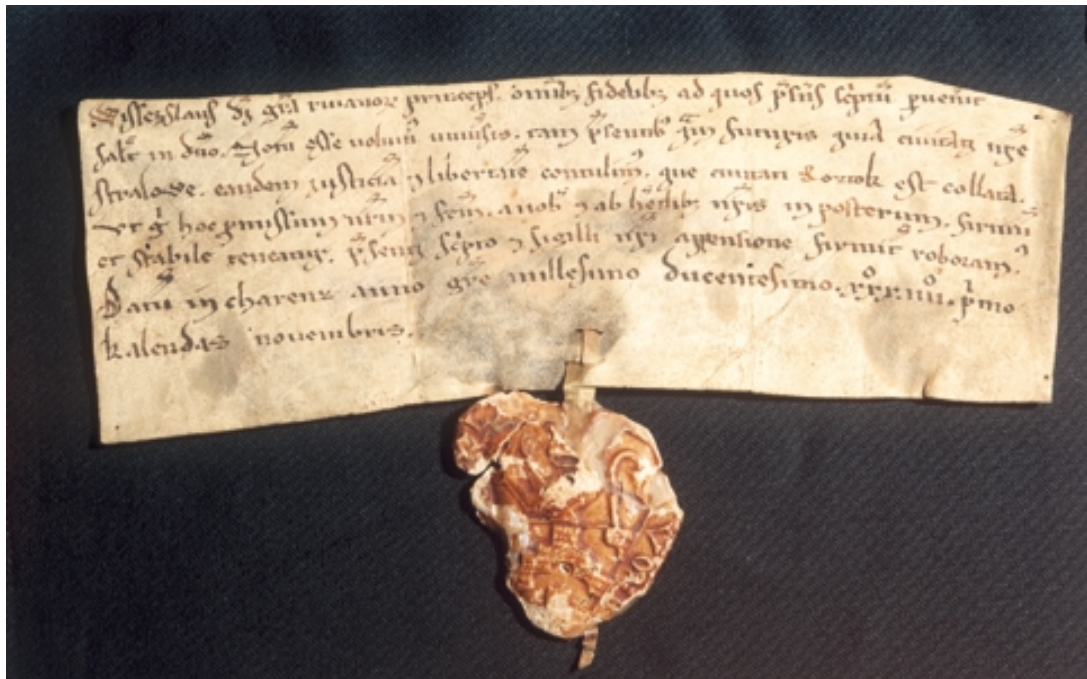 Wisseslaus dī grā ruianoꝝ princeps. omībꝫ fidelibꝫ ad quos p̄sēs scͥptū ꝑuenīt
salt̄ in dn̄o. Notū esse volum᷒ vniu͛sis. tam p̄sentibꝫ q̄m futuris quia ciuitati nr̄e
stralowe. eandem iusticiā ⁊ libertatē contulim᷒. que ciuitati Rozstok est collata.
vt g̊ hoc ꝓmissum nr̄m ⁊ fcm̄. a nobꝫ ⁊ ab he᷒dibꝫ nr̄is in posterum. firmū
et stabile teneatur. p̄senti scͥpto ⁊ sigilli nr̄i appensione firmit͛ roboram᷒.
Datū in charenz anno gr̄e millesimo ducentesimo. xxxͦiiiiͦ. pͥmo
kalendas nouembris.